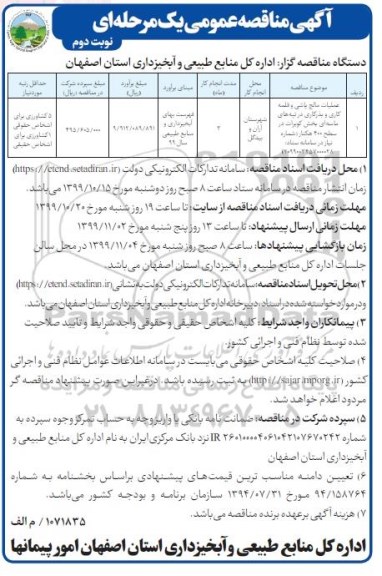 آگهی مناقصه عمومی یک مرحله‌ای
نوبت دوم
دستگاه مناقصه گزار: اداره کل منابع طبیعی و آبخیزداری استان اصفهان
ردیف
موضوع مناقصه
محل انجام کار
مدت انجام کار (ماه)
مبنای برآورد
مبلغ برآورد (ریال)
مبلغ سپرده شرکت در مناقصه (ریال)
حداقل رتبه موردنیاز
۱
عملیات مالچ پاشی و قلمه کاری و بذرکاری در تپه‌های ماسه‌ای بخش کویرات در سطح ۳۰۰ هکتار؛ شماره نیاز در سامانه ستاد:
شهرستان آران و بیدگل
۲
فهرست بهای آبخیزداری و منابع طبیعی سال ۹۹
۹/۹۱۲/۰۸۹/۸۹۱
۴۹۵/۶۰۵/۰۰۰
۵ کشاورزی برای اشخاص حقوقی
۱ کشاورزی برای اشخاص حقیقی
۱) محل دریافت اسناد مناقصه: سامانه تدارکات الکترونیکی دولت (https://etend.setadiran.ir)
زمان انتشار مناقصه در سامانه ستاد ساعت ۸ صبح روز دوشنبه مورخ ۱۳۹۹/۱۰/۱۵ می‌باشد.
مهلت زمانی دریافت اسناد مناقصه از سایت: تا ساعت ۱۹ روز شنبه مورخ ۱۳۹۹/۱۰/۲۰
مهلت زمانی ارسال پیشنهاد: تا ساعت ۱۳ روز پنج شنبه مورخ ۱۳۹۹/۱۱/۰۲
زمان بازگشایی پیشنهادها: ساعت ۸ صبح روز شنبه مورخ ۱۳۹۹/۱۱/۰۴ در محل سالن
جلسات اداره کل منابع طبیعی و آبخیزداری استان اصفهان می‌باشد.
۲) محل تحویل اسناد مناقصه: سامانه تدارکات الکترونیکی دولت به نشانی (https://etend.setadiran.ir)
و در موارد خواسته شده در اسناد، دبیرخانه اداره کل منابع طبیعی و آبخیزداری استان اصفهان می‌باشد.
۳) پیمانکاران واجد شرایط: کلیه اشخاص حقیقی و حقوقی واجد شرایط و تایید صلاحیت
شده توسط نظام فنی و اجرائی کشور
۴) صلاحیت کلیه اشخاص حقوقی می‌بایست در پیامانه اطلاعات عوامل نظام فنی و اجرائی
کشور (http://sajar.mporg.ir) به ثبت رسیده باشد. در غیر این صورت پیشنهاد مناقصه گر
مردود اعلام خواهد شد.
۵) سپرده شرکت در مناقصه: ضمانت نامه بانکی یا واریز وجه به حساب تمرکز وجوه سپرده به
شماره IR ۲۶۰۱۰۰۰۰۴۰۶۱۰۴۲۱۰۷۶۷۰۲۴۲ نزد بانک مرکزی ایران به نام اداره کل منابع طبیعی و
آبخیزداری استان اصفهان
۶) تعیین دامنه مناسب ترین قیمت‌های پیشنهادی براساس بخشنامه به شماره
۹۴/۱۵۸۷۶۴ مورخ ۱۳۹۴/۰۷/۳۱ سازمان برنامه و بودجه کشور می‌باشد.
۷) هزینه آگهی برعهده برنده مناقصه می‌باشد.
۱۰۷۱۸۳۵ / م الف
اداره کل منابع طبیعی و آبخیزداری استان اصفهان امور پیمانها